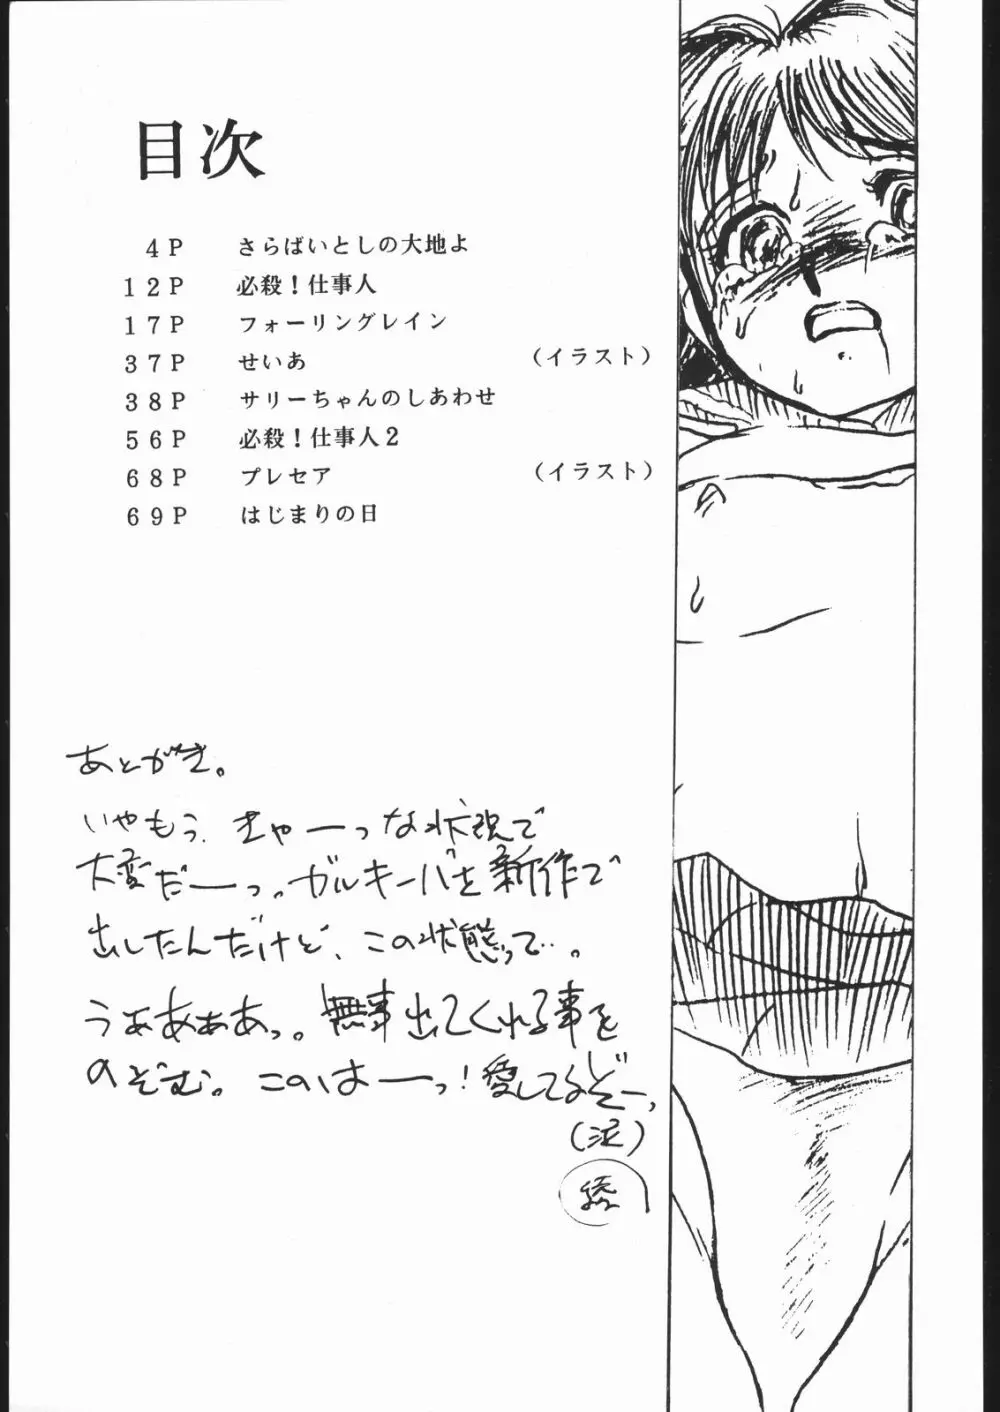 目次
4P さらばいとしの大地よ
12P 必殺！仕事人
17P フォーリングレイン
37P せいあ （イラスト）
38P サリーちゃんのしあわせ
56P 必殺！仕事人2
68P プレセア （イラスト）
69P はじまりの日
あとがき。
いやもう、きゃーっな状況で
大変だーっ。ガルキーバを新作で
出したんだけど、この状態って…。
うああぁあっ。無事出てくれる事を
のぞむ。このはーっ！愛してるぞー、
(泥)